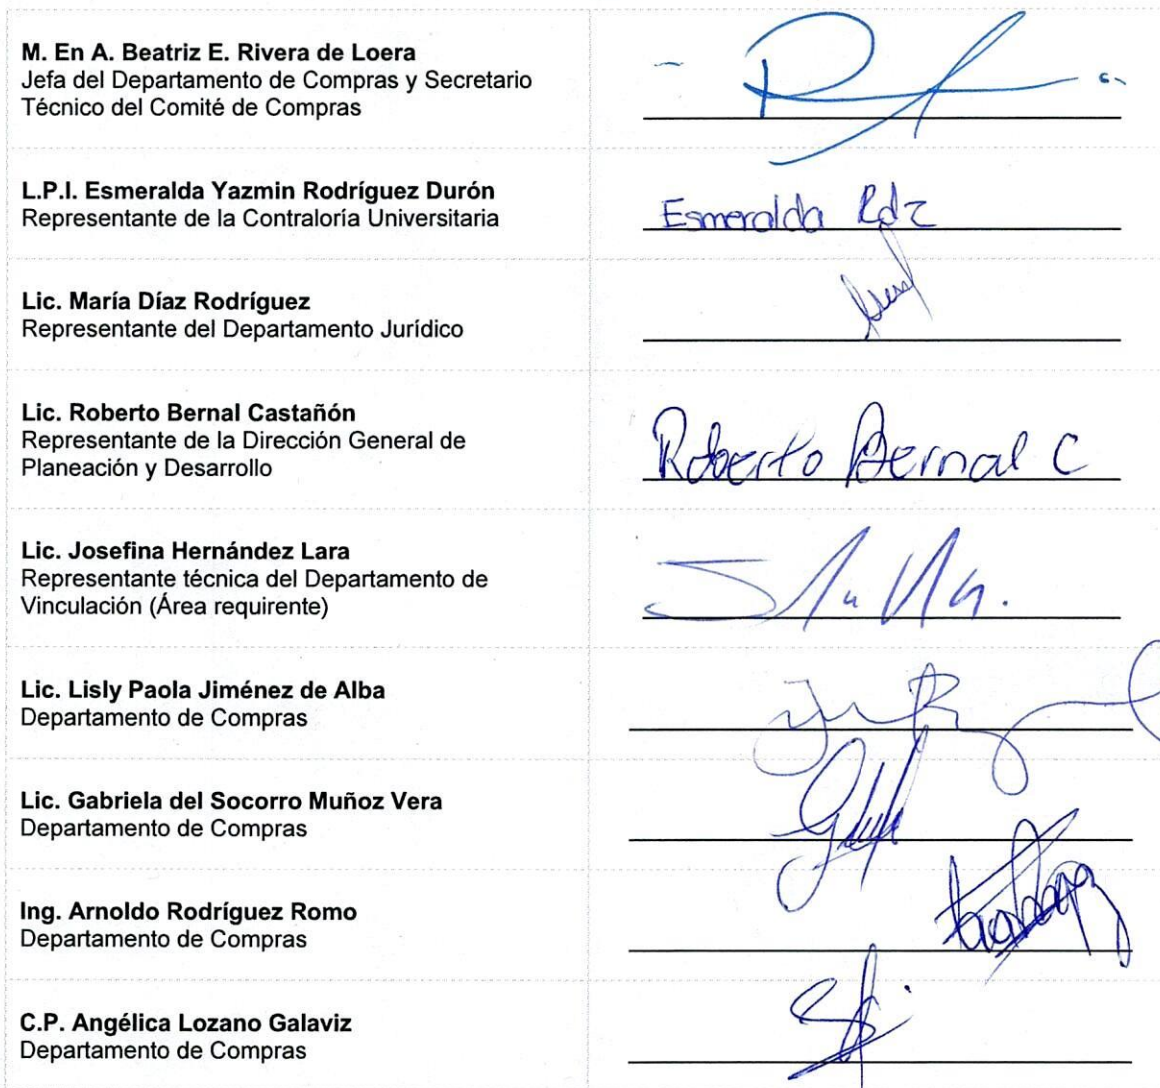 M. En A. Beatriz E. Rivera de Loera
Jefa del Departamento de Compras y Secretario
Técnico del Comité de Compras
L.P.I. Esmeralda Yazmin Rodríguez Durón
Representante de la Contraloría Universitaria
Esmeralda Rdz
Lic. María Díaz Rodríguez
Representante del Departamento Jurídico
Lic. Roberto Bernal Castañón
Representante de la Dirección General de
Planeación y Desarrollo
Roberto Bernal C
Lic. Josefina Hernández Lara
Representante técnica del Departamento de
Vinculación (Área requirente)
Lic. Lisly Paola Jiménez de Alba
Departamento de Compras
Lic. Gabriela del Socorro Muñoz Vera
Departamento de Compras
Ing. Arnoldo Rodríguez Romo
Departamento de Compras
C.P. Angélica Lozano Galaviz
Departamento de Compras